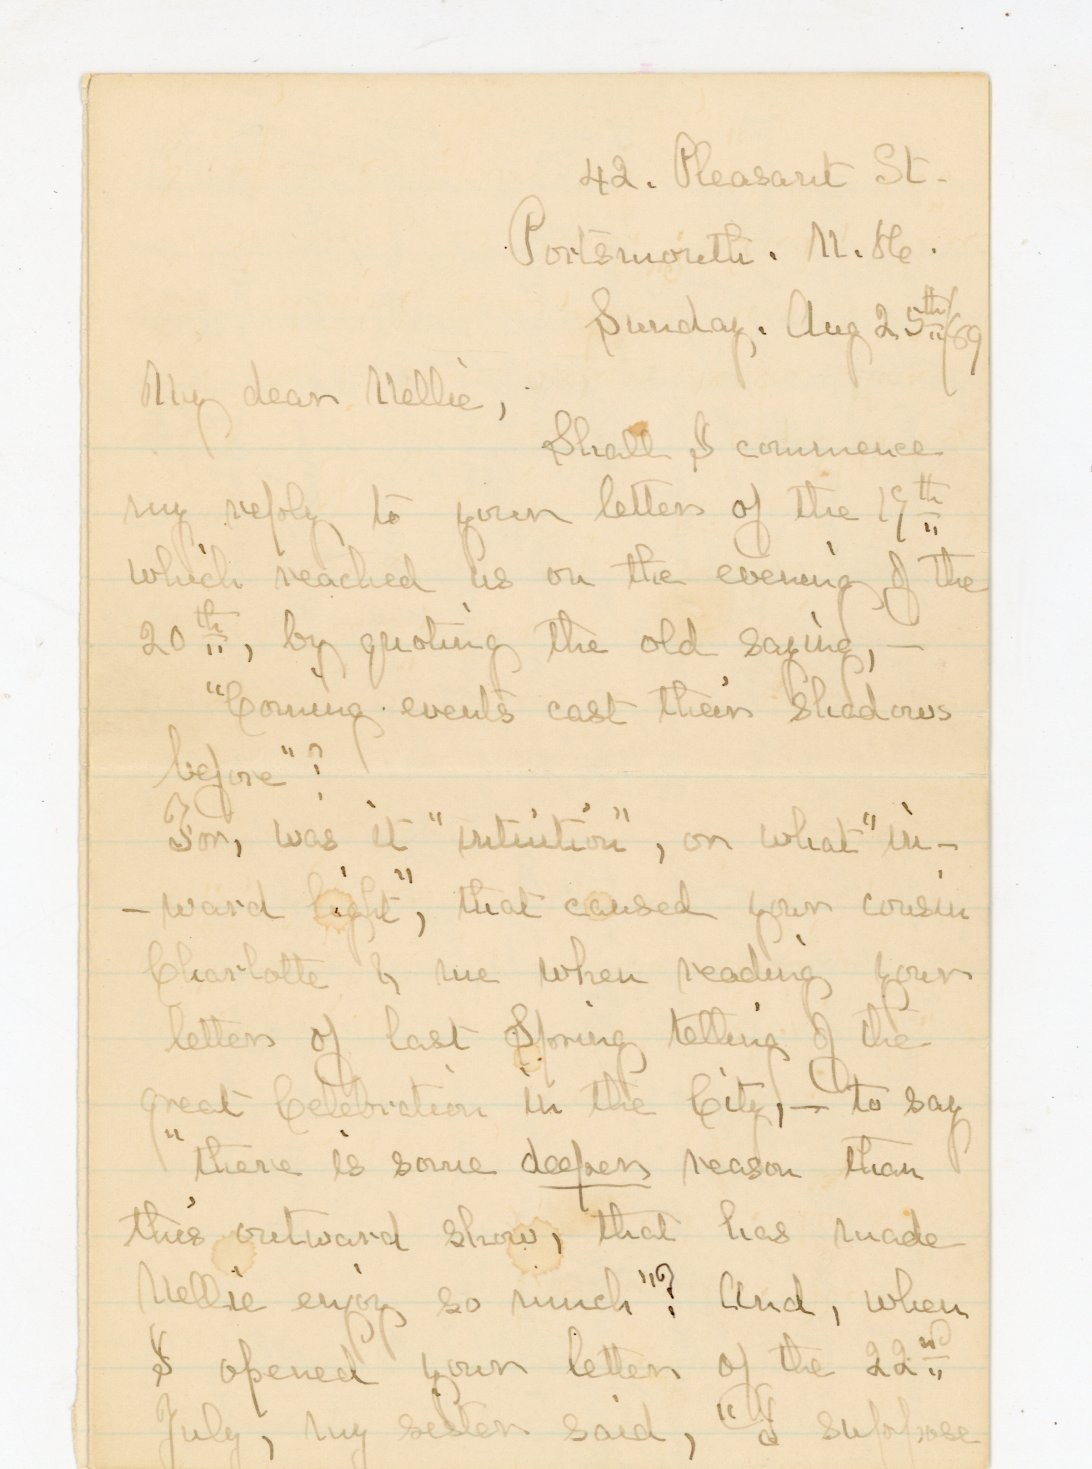 42. Pleasant St.
Portsmouth. N.H.
Sunday. Aug 25th/89
My dear Nellie,
Shall I commence
my reply to your letter of the 19th
which reached us on the evening of the
20th, by quoting the old saying, —
"Coming events cast their shadows
before"?
For, was it "intuition", or what "in-
-ward light", that caused your cousin
Charlotte & me when reading your
letter of last Spring telling of the
great Celebration in the City, — to say
"there is some deeper reason than
this outward show, that has made
Nellie enjoy so much"? And, when
I opened your letter of the 22nd
July, my sister said, "I suppose